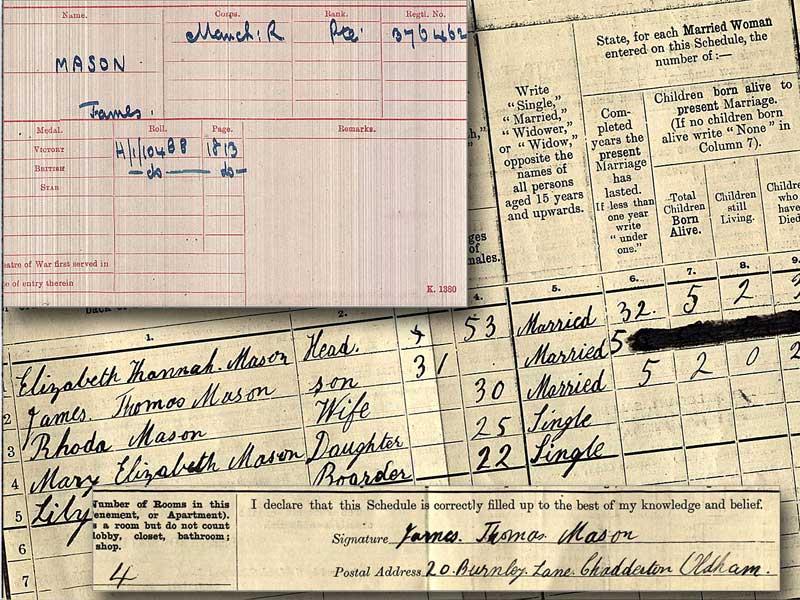 Name. Corps. Rank. Regtl. No.
Manch: R Pte. 376462
MASON
James.
Medal. Roll. Page. Remarks.
VICTORY H/1/104B8 1813
BRITISH —do— do—
STAR
eatre of War first served in
e of entry therein
K. 1380
Write
"Single,"
"Married,"
"Widower,"
or "Widow,"
opposite the
names of
all persons
aged 15 years
and upwards.
State, for each Married Woman
entered on this Schedule, the
number of:—
Com-
pleted
years the
present
Marriage
has
lasted.
If less than
one year
write
"under
one."
Children born alive to
present Marriage.
(If no children born
alive write "None" in
Column 7).
Total
Children
Born
Alive.
Children
still
Living.
Childre
who
have
Died
ges
of
males.
1. 2. 4. 5. 6. 7. 8. 9.
1 Elizabeth Hannah. Mason Head. 53 Married 32. 5 2
2 James Thomas Mason son 31 Married 5
3 Rhoda Mason Wife 30 Married 5 2 0 2
4 Mary Elizabeth Mason Daughter 25 Single
5 Lily Boarder 22 Single
6
7
Number of Rooms in this
enement, or Apartment).
s a room but do not count
lobby, closet, bathroom;
shop.
4
I declare that this Schedule is correctly filled up to the best of my knowledge and belief.
Signature James. Thomas Mason
Postal Address 20. Burnley. Lane. Chadderton Oldham.